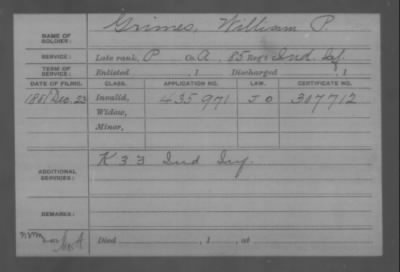 NAME OF SOLDIER: Grimes, William P.
SERVICE: Late rank, P Co. A, 85 Reg't Ind. Inf.
TERM OF SERVICE: Enlisted , 1 Discharged , 1
DATE OF FILING. CLASS. APPLICATION NO. LAW. CERTIFICATE NO.
1881 Dec. 23 Invalid, 435971 307712
Widow,
Minor,
ADDITIONAL SERVICES: K 33 Ind Inf.
REMARKS:
Died , 1 , at